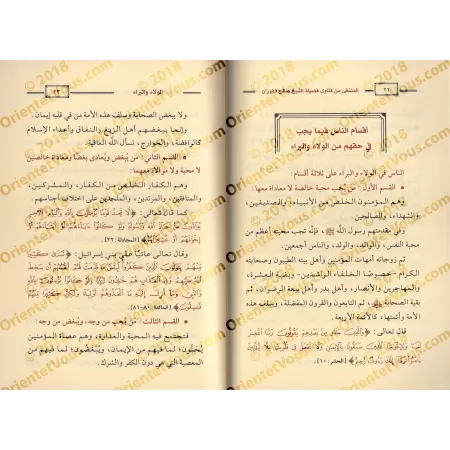 المنتقى من فتاوى فضيلة الشيخ صالح الفوزان
أقسام الناس فيما يجب
في حقهم من الولاء والبراء
الناس في الولاء والبراء على ثلاثة أقسام:
القسم الأول: من يُحب محبة خالصة لا معاداة معها:
وهم المؤمنون الخلص من الأنبياء، والصديقين،
والشهداء، والصالحين.
وفي مقدمتهم رسول الله ﷺ؛ فإنه تجب محبته أعظم من
محبة النفس، والولد، والوالد، والناس أجمعين.
ثم زوجاته أمهات المؤمنين وأهل بيته الطيبون وصحابته
الكرام - خصوصًا الخلفاء الراشدين - وبقية العشرة،
والمهاجرين والأنصار، وأهل بدر وأهل بيعة الرضوان، ثم
بقية الصحابة، ثم التابعون والقرون المفضلة، وسلف هذه
الأمة وأئمتها، كالأئمة الأربعة.
قال تعالى: ﴿وَالَّذِينَ جَاءُو مِن بَعْدِهِمْ يَقُولُونَ رَبَّنَا اغْفِرْ
لَنَا وَلِإِخْوَانِنَا الَّذِينَ سَبَقُونَا بِالْإِيمَانِ وَلَا تَجْعَلْ فِي قُلُوبِنَا غِلًّا لِّلَّذِينَ
آمَنُوا رَبَّنَا إِنَّكَ رَءُوفٌ رَّحِيمٌ﴾ [الحشر: ١٠].
الولاء والبراء
ولا يبغض الصحابة وسلف هذه الأمة من في قلبه إيمان.
وإنما يبغضهم أهل الزيغ والنفاق وأعداء الإسلام
كالرافضة، والخوارج، نسأل الله العافية.
القسم الثاني: من يُبغض ويُعادى بغضًا ومعاداة خالصين
لا محبة ولا موالاة معهما:
وهم الكفار الخلص من الكفار، والمشركين،
والمنافقين، والمرتدين، والملحدين على اختلاف أجناسهم.
كما قال تعالى: ﴿لَا تَجِدُ قَوْمًا يُؤْمِنُونَ بِاللَّهِ وَالْيَوْمِ الْآخِرِ
[المجادلة: ٢٢].
وقال تعالى عائبًا على بني إسرائيل: ﴿تَرَىٰ كَثِيرًا
[المائدة: ٨٠-٨١].
القسم الثالث: من يُحب من وجه، ويُبغض من وجه:
فتجتمع فيه المحبة والعداوة، وهم عصاة المؤمنين
يُحبون؛ لما فيهم من الإيمان، ويُبغضون؛ لما فيهم من
المعصية التي هي دون الكفر والشرك.
© 2018 OrientetVous.com